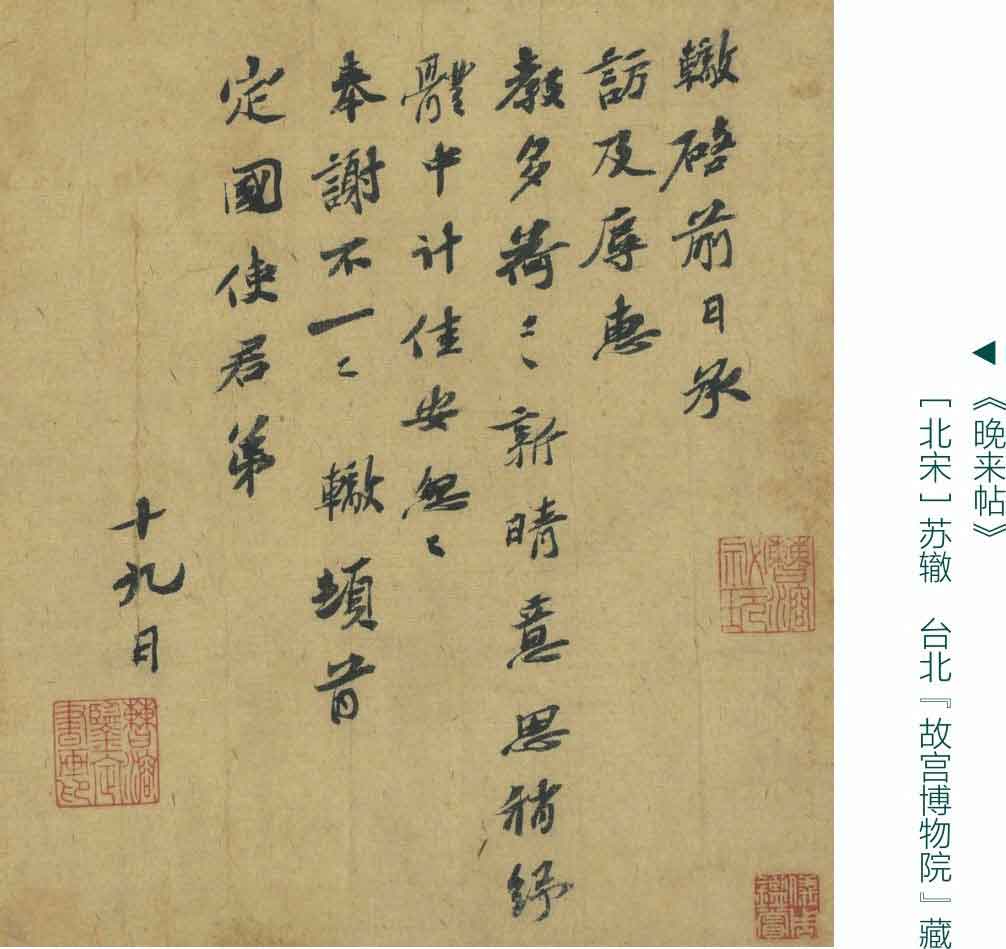 轍啓前日承
訪及辱惠
教多荷=新晴意思稍紓
體中計佳安怱=
奉謝不一=轍頓首
定國使君弟
十九日
《晚来帖》
［北宋］苏辙 台北『故宫博物院』藏